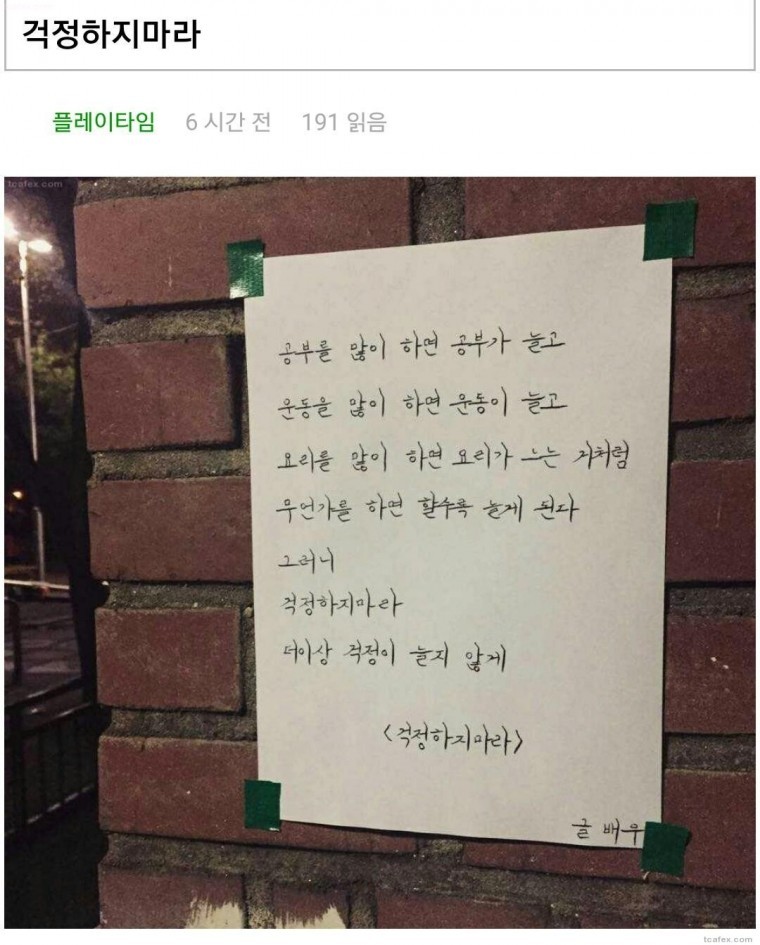 걱정하지마라
플레이타임 6 시간 전 191 읽음
tcafex.com
공부를 많이 하면 공부가 늘고
운동을 많이 하면 운동이 늘고
요리를 많이 하면 요리가 느는 거처럼
무언가를 하면 할수록 늘게 된다
그러니
걱정하지마라
더이상 걱정이 늘지 않게
<걱정하지마라>
글 배우
tcafex.com